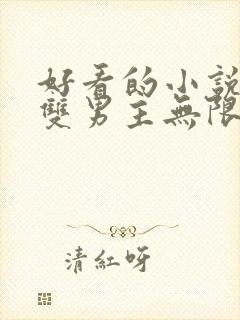 好看的小說
雙男主無限
清紅呀